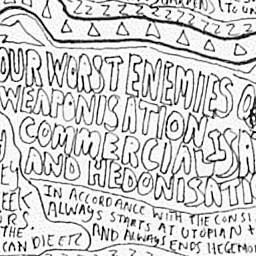 OUR WORST ENEMIES
WEAPONISATION
COMMERCIALISA
AND HEDONISATI
IN ACCORDANCE WITH THE CONSI
ALWAYS STARTS AT UTOPIAN +
AND ALWAYS ENDS HEGEMO
THE
CAN DIE ETC